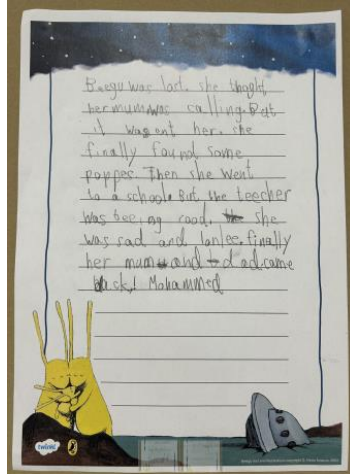 Beegu was lost. she thoght
her mum was calling. But
it wasent her. she
finally found some
poppes. Then she went
to a school. But the teecher
was beeing rood. she
was sad and lonlee. finally
her mum and dad came
back! Mohammed
twinkl